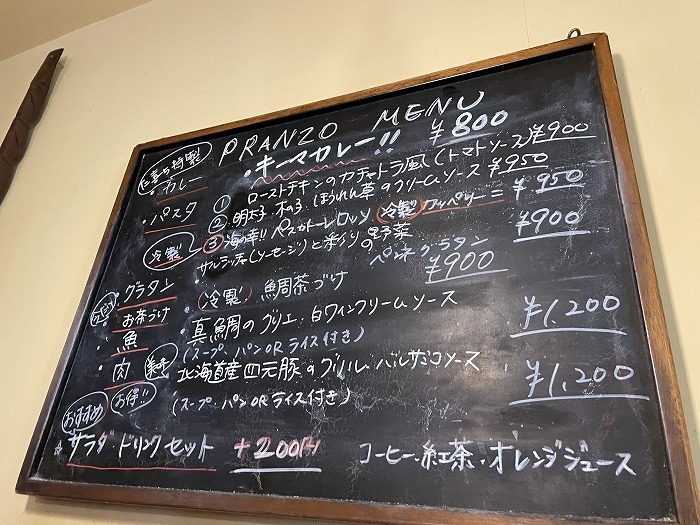 PRANZO MENU
特製
・カレー ・キーマカレー!! ¥800
・パスタ ① ローストチキンのカチャトラ風(トマトソース) ¥900
② 明太子、木の子、ほうれん草のクリームソース ¥950
冷製 ③ 海の幸!! ペスカトーレロッソ 冷製 ¥950
・グラタン サルシッチャ(ソーセージ)と彩りの野菜 ペンネグラタン ¥900
・お茶づけ ・冷製 鯛茶づけ ¥900
・魚 ・真鯛のグリエ・白ワインクリームソース ¥1,200
(スープ・パンORライス付き)
・肉 ・北海道産四元豚のグリル・バルサミコソース ¥1,200
おすすめ お得!! (スープ・パンORライス付き)
☆サラダ・ドリンクセット +200円 コーヒー・紅茶・オレンジジュース